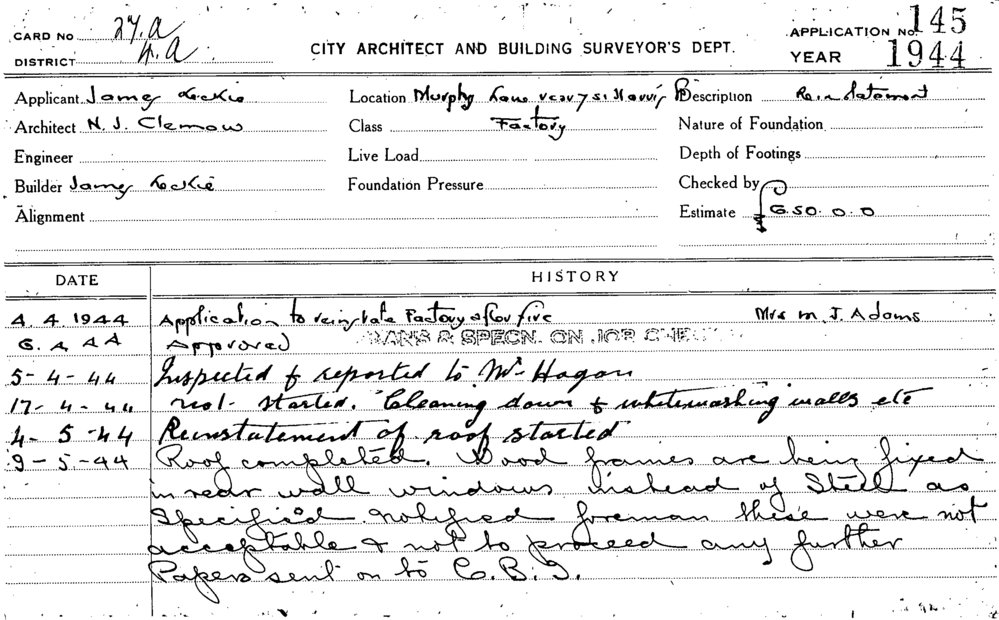 CARD NO 27.A
DISTRICT 4.A
CITY ARCHITECT AND BUILDING SURVEYOR'S DEPT.
APPLICATION No. 145
YEAR 1944
Applicant James Leckie
Location Murphy Lane rear 7 St. Harris
Description Reinstatement
Architect N. J. Clemow
Class Factory
Nature of Foundation
Engineer
Live Load
Depth of Footings
Builder James Leckie
Foundation Pressure
Checked by
Alignment
Estimate £650.0.0
DATE HISTORY
4.4.1944 Application to reinstate Factory after fire Mrs M. J. Adams
6.4.44 Approved PLANS & SPECN. ON JOB
5-4-44 Inspected & reported to Mr Hogan
17-4-44 not started. Cleaning down & whitewashing walls etc
4-5-44 Reinstatement of roof started
9-5-44 Roof completed. Wood frames are being fixed
in rear wall windows instead of Steel as
specified. Notified foreman these were not
acceptable & not to proceed any further
Papers sent on to C.B.I.